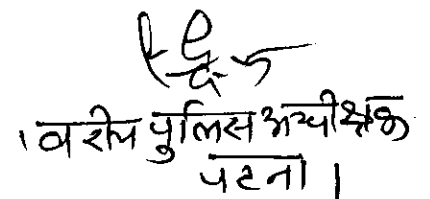 वरीय पुलिस अधीक्षक
पटना।